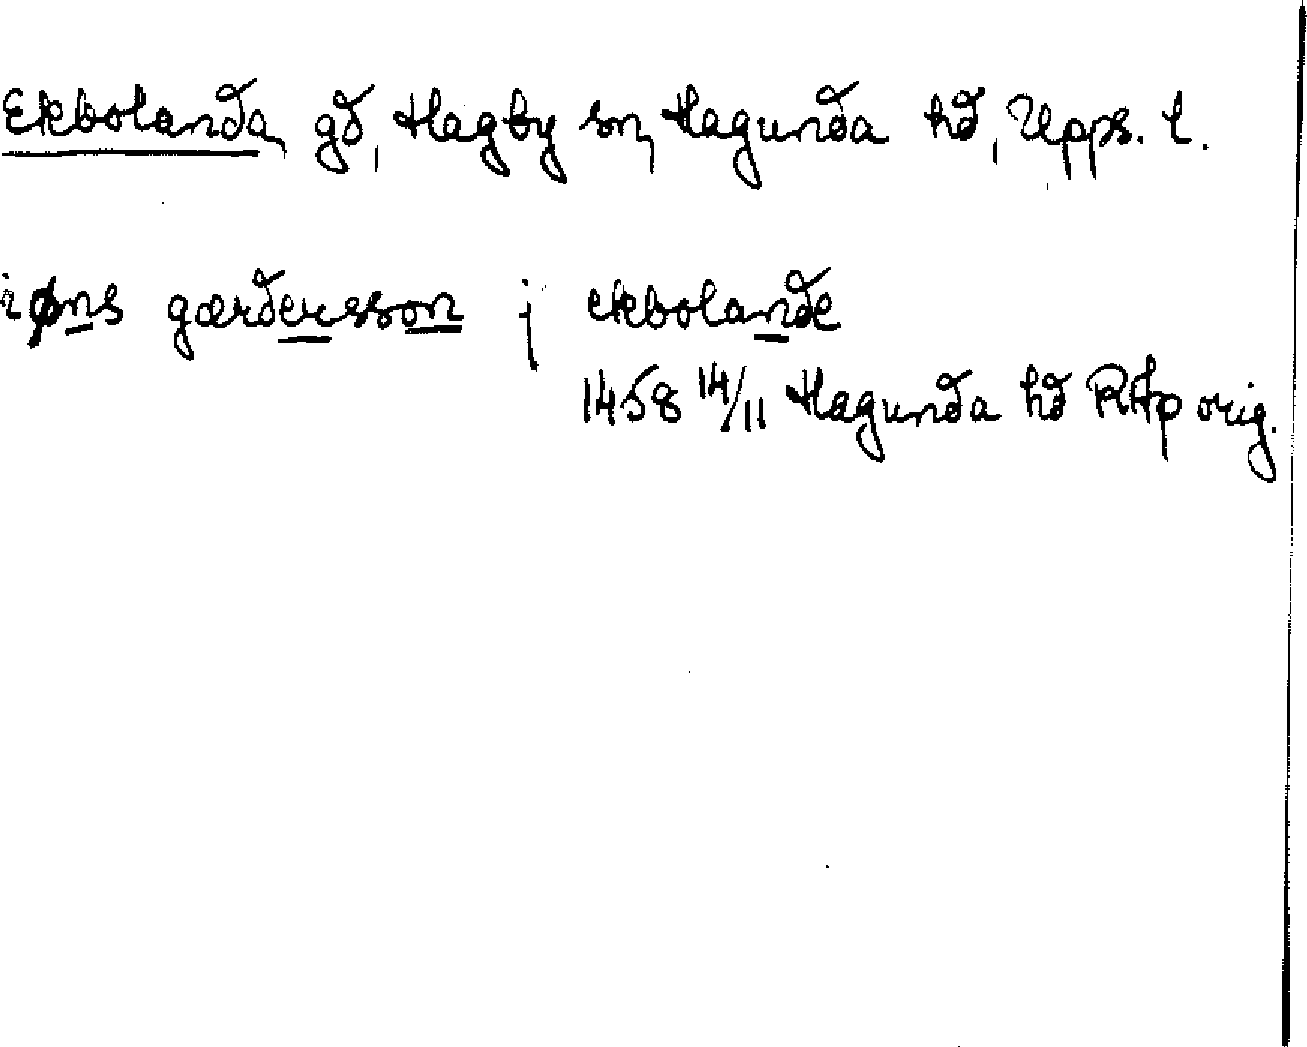 Ekbolanda, gd, Hagby sn, Hagunda hd, Upps. l.
iøns gærdersson j ekbolande
1458 14/11 Hagunda hd RAp orig.